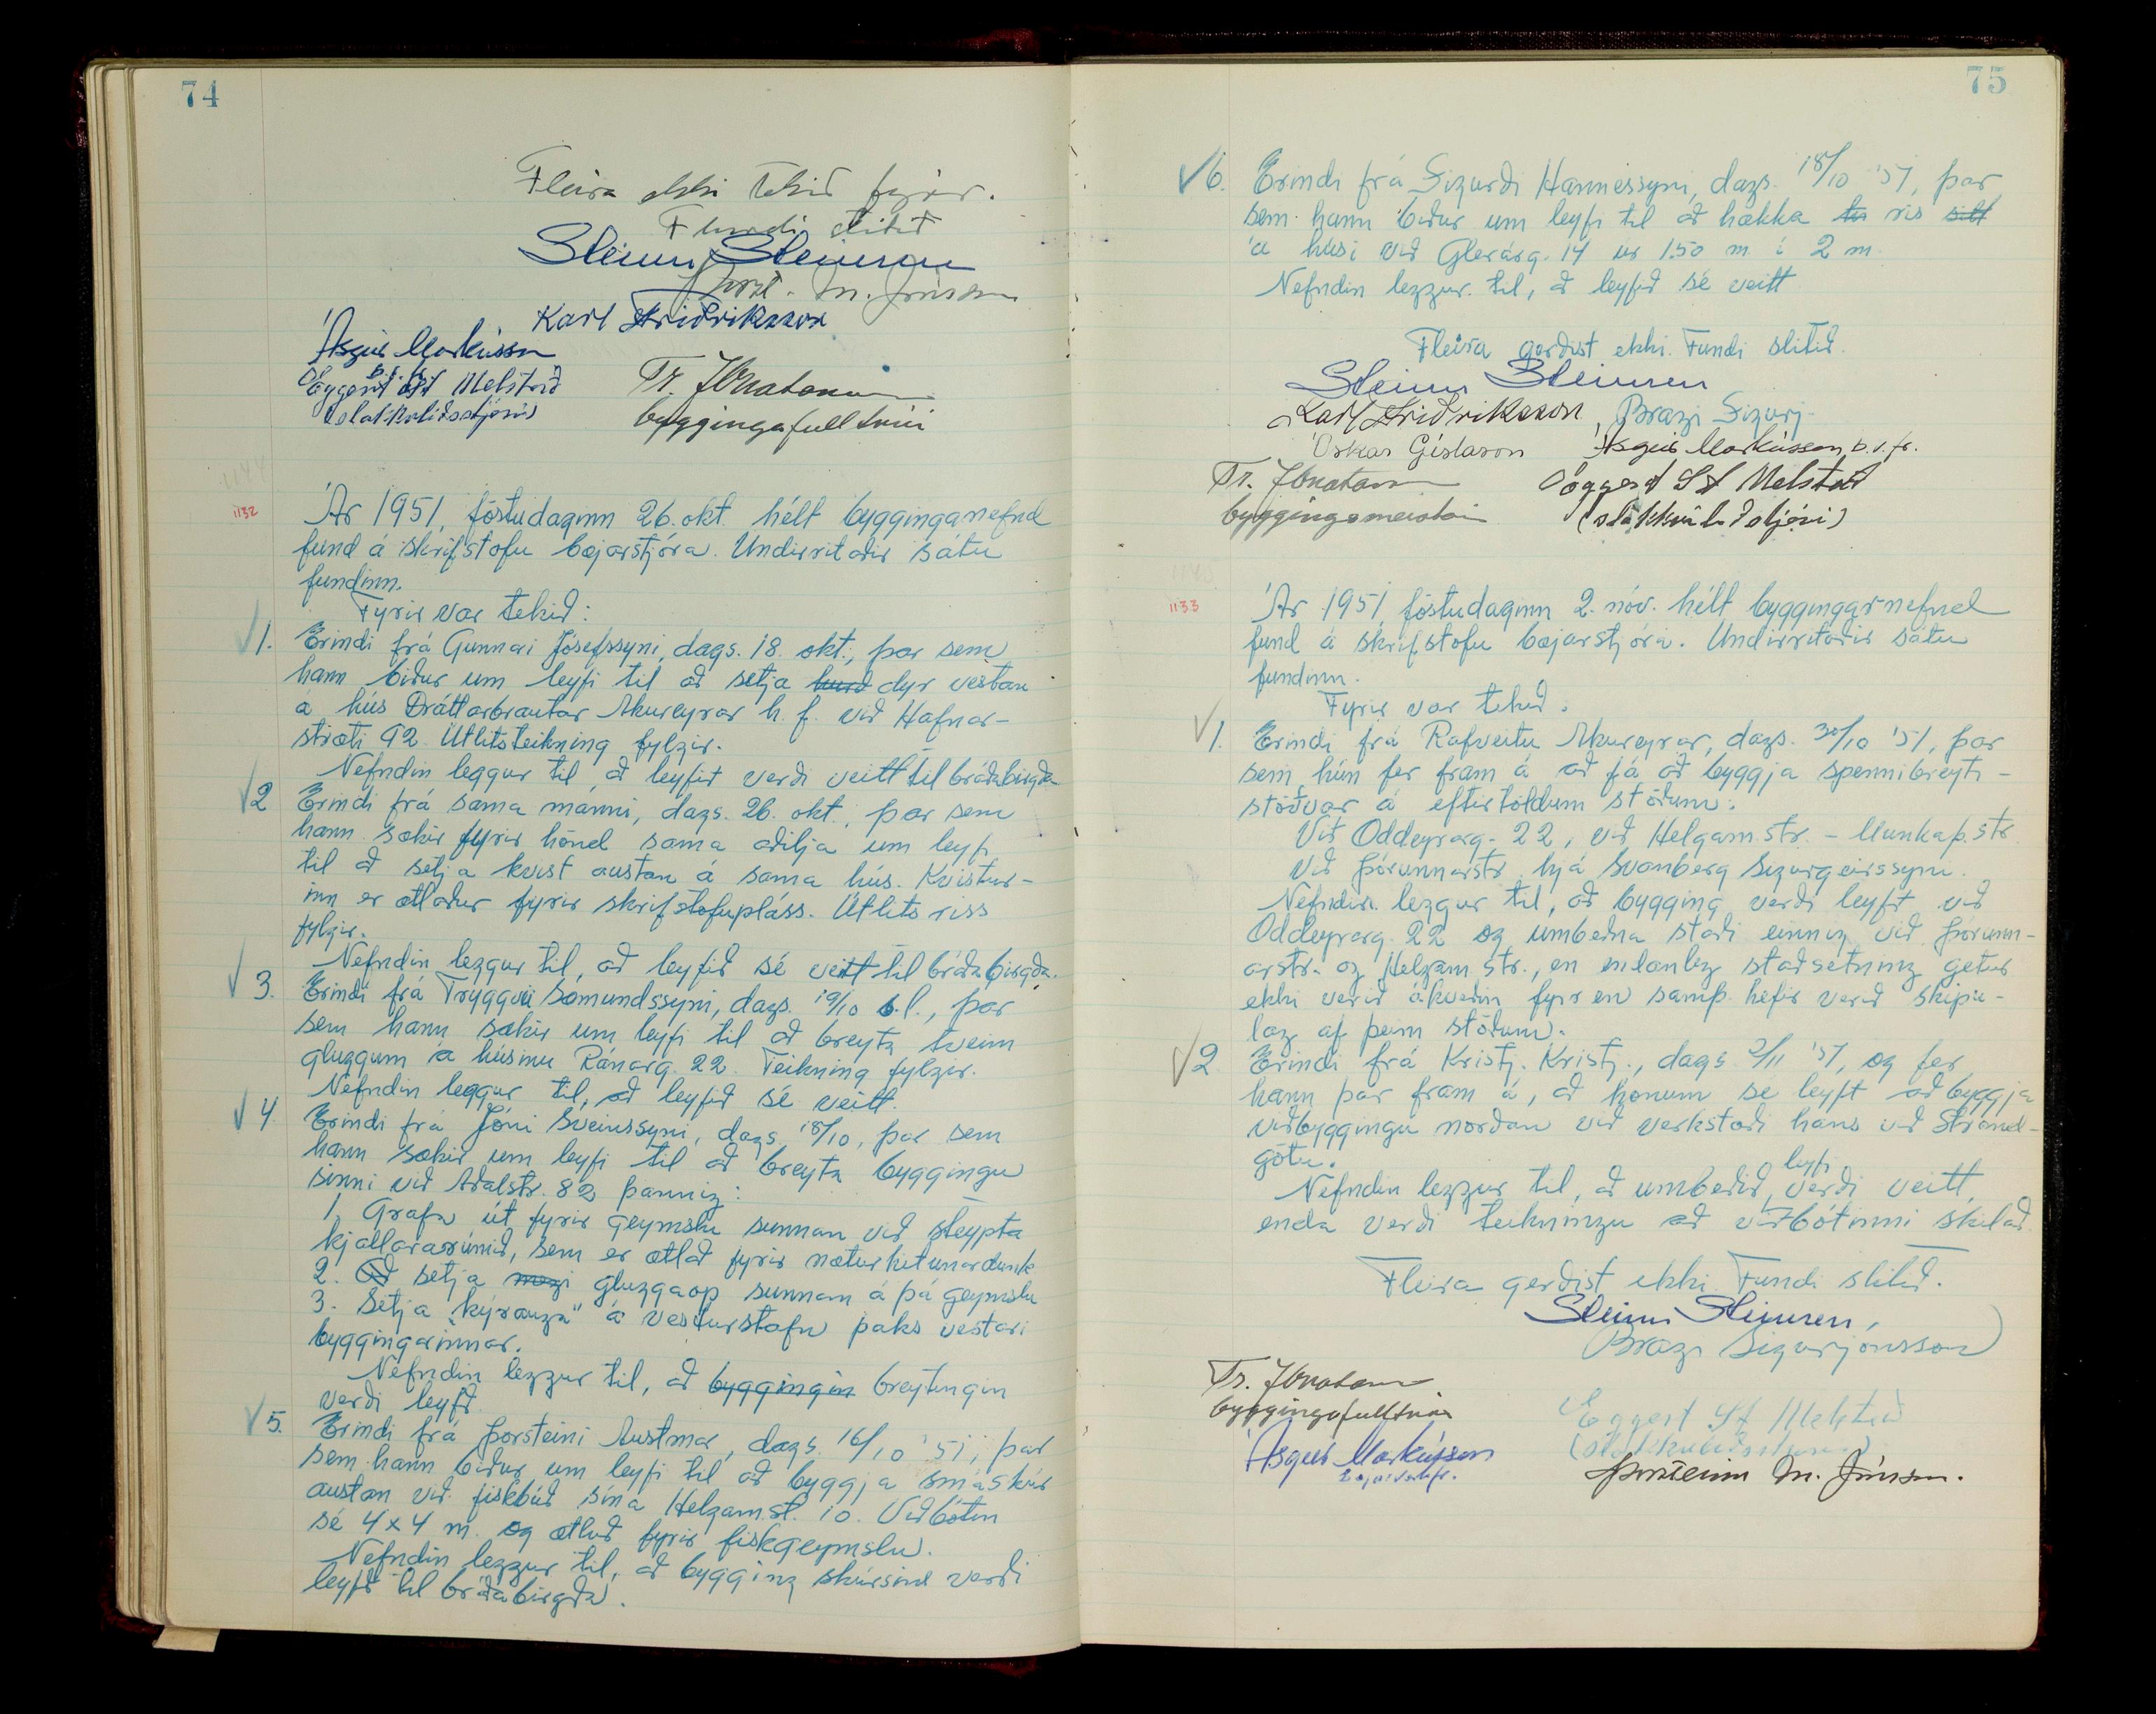 74
Fleira ekki tekið fyrir.
Fundi slitið
Steinn Steinsen
Þorst. M. Jónsson
Karl Friðriksson
Ásgeir Markússon
b.v.fr.
Eggert St Melstað
(slökkviliðsstjóri)
Tr. Jónatansson
byggingafulltrúi
1144
1132
Ár 1951, föstudaginn 26. okt. hélt bygginganefnd
fund á skrifstofu bæjarstjóra. Undirritaðir sátu
fundinn.
Fyrir var tekið:
1. Erindi frá Gunnari Jósefssyni, dags. 18. okt., þar sem
hann biður um leyfi til að setja hurð dyr vestan
á hús Dráttarbrautar Akureyrar h.f. við Hafnar-
stræti 92. Útlitsteikning fylgir.
Nefndin leggur til að leyfið verði veitt til bráðabirgða
2 Erindi frá sama manni, dags. 26. okt., þar sem
hann sækir fyrir hönd sama aðilja um leyfi
til að setja kvist austan á sama hús. Kvistur-
inn er ætlaður fyrir skrifstofupláss. Útlits riss
fylgir.
Nefndin leggur til, að leyfið sé veitt til bráðabirgða.
3. Erindi frá Tryggvi Sæmundssyni, dags. 19/10 s.l., þar
sem hann sækir um leyfi til að breyta tveim
gluggum á húsinu Ránarg. 22. Teikning fylgir.
Nefndin leggur til, að leyfið sé veitt.
4 Erindi frá Jóni Sveinssyni, dags. 18/10, þar sem
hann sækir um leyfi til að breyta byggingu
sinni við Aðalstr. 82 þannig:
1, Grafa út fyrir geymslu sunnan við steypta
kjallararúmið, sem er ætlað fyrir næturhitunardunk
2. Að setja megi gluggaop sunnan á þá geymslu
3. Setja "kýrauga" á vesturstafn þaks vestari
byggingarinnar.
Nefndin leggur til, að byggingin breytingin
verði leyfð.
5. Erindi frá Þorsteini Austmar, dags. 16/10 '51, þar
sem hann biður um leyfi til að byggja smáskúr
austan við fiskbúð sína Helgam.st. 10. Viðbótin
sé 4x4 m. og ætluð fyrir fiskgeymslu.
Nefndin leggur til, að bygging skúrsins verði
leyfð til bráðabirgða.
75
6. Erindi frá Sigurði Hannessyni, dags. 18/10 '51, þar
sem hann biður um leyfi til að hækka ris sitt
á húsi við Glerárg. 14 úr 1.50 m. í 2 m.
Nefndin leggur til, að leyfið sé veitt
Fleira gerðist ekki. Fundi slitið.
Steinn Steinsen
Karl Friðriksson, Bragi Sigurj.
Óskar Gíslason Ásgeir Markússon b.v.fr.
Tr. Jónatansson Eggert St Melstað
byggingameistari (slökkviliðsstjóri)
1145
1133
Ár 1951, föstudaginn 2. nóv. hélt bygginganefnd
fund á skrifstofu bæjarstjóra. Undirritaðir sátu
fundinn.
Fyrir var tekið:
1. Erindi frá Rafveitu Akureyrar, dags. 30/10 '51, þar
sem hún fer fram á að fá að byggja spennibreyti-
stöðvar á eftirtöldum stöðum:
Við Oddeyrarg. 22, við Helgam.str. - Munkaþ.str.
Við Þórunnarstr. hjá Svanberg Sigurgeirssyni.
Nefndin leggur til, að bygging verði leyfð við
Oddeyrarg. 22 og umbeðna staði einnig við Þórunn-
arstr. og Helgam.str., en endanleg staðsetning getur
ekki verið ákveðin fyrr en samþ. hefir verið skipu-
lag af þeim stöðum.
2. Erindi frá Kristj. Kristj., dags 2/11 '51, og fer
hann þar fram á, að honum sé leyft að byggja
viðbyggingu norðan við verkstæði hans við Strand-
götu.
Nefndin leggur til, að umbeðið leyfi verði veitt,
enda verði teikningu að viðbótinni skilað.
Fleira gerðist ekki. Fundi slitið.
Steinn Steinsen,
Bragi Sigurjónsson
Tr. Jónatansson
byggingafulltrúi
Eggert St Melstað
(slökkviliðsstjóri)
Ásgeir Markússon
bæjarverkfr.
Þorsteinn M. Jónsson.